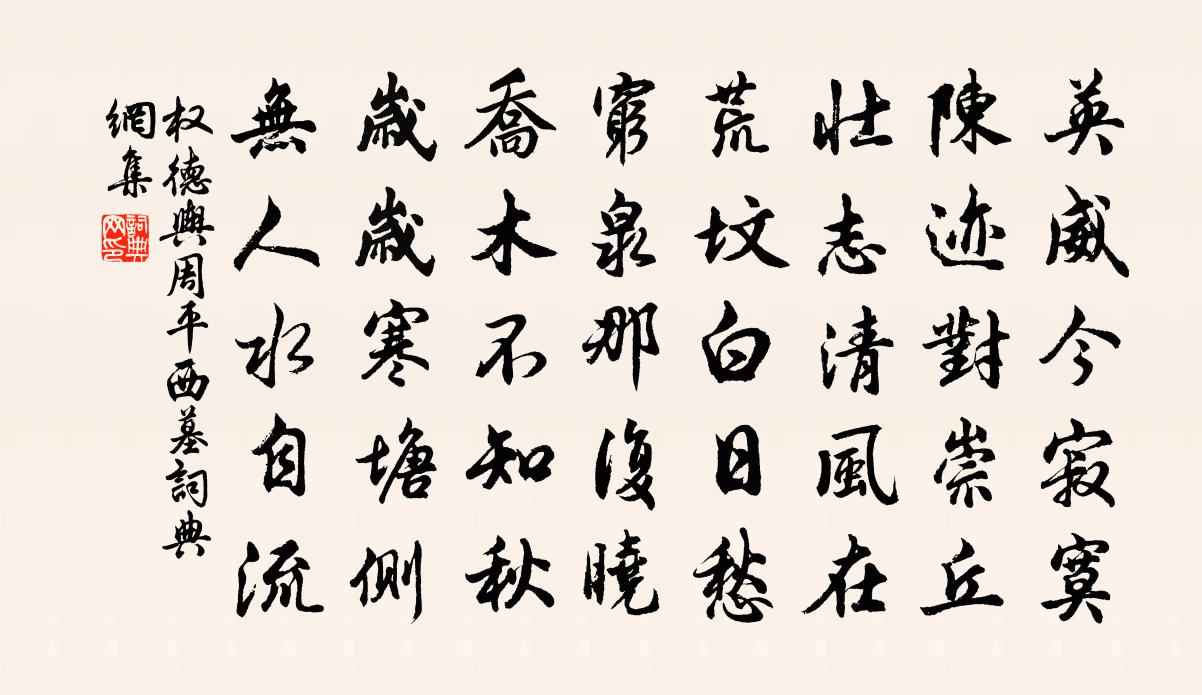 英威今寂寞
陳迹對崇丘
壯志清風在
荒坟白日愁
窮泉那復曉
喬木不知秋
歲歲寒塘側
無人水自流
权德輿周平西墓詞典
網集
詞典
网印